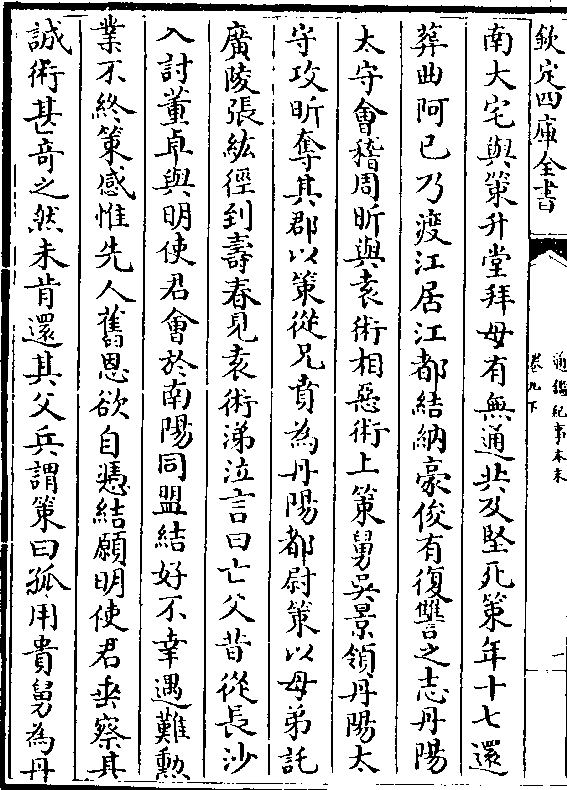 欽定四庫全書
通鑑紀事本末
卷九下
一
南大宅與策升堂拜母有無通共及堅死策年十七還
葬曲阿已乃渡江居江都結納豪俊有復讐之志丹陽
太守會稽周昕與袁術相惡術上策舅吳景領丹陽太
守攻昕奪其郡以策從兄賁為丹陽都尉策以母弟託
廣陵張紘徑到壽春見袁術涕泣言曰亡父昔從長沙
入討董卓與明使君會於南陽同盟結好不幸遇難勲
業不終策感惟先人舊恩欲自憑結願明使君垂察其
誠術甚竒之然未肯還其父兵謂策曰孤用貴舅為丹